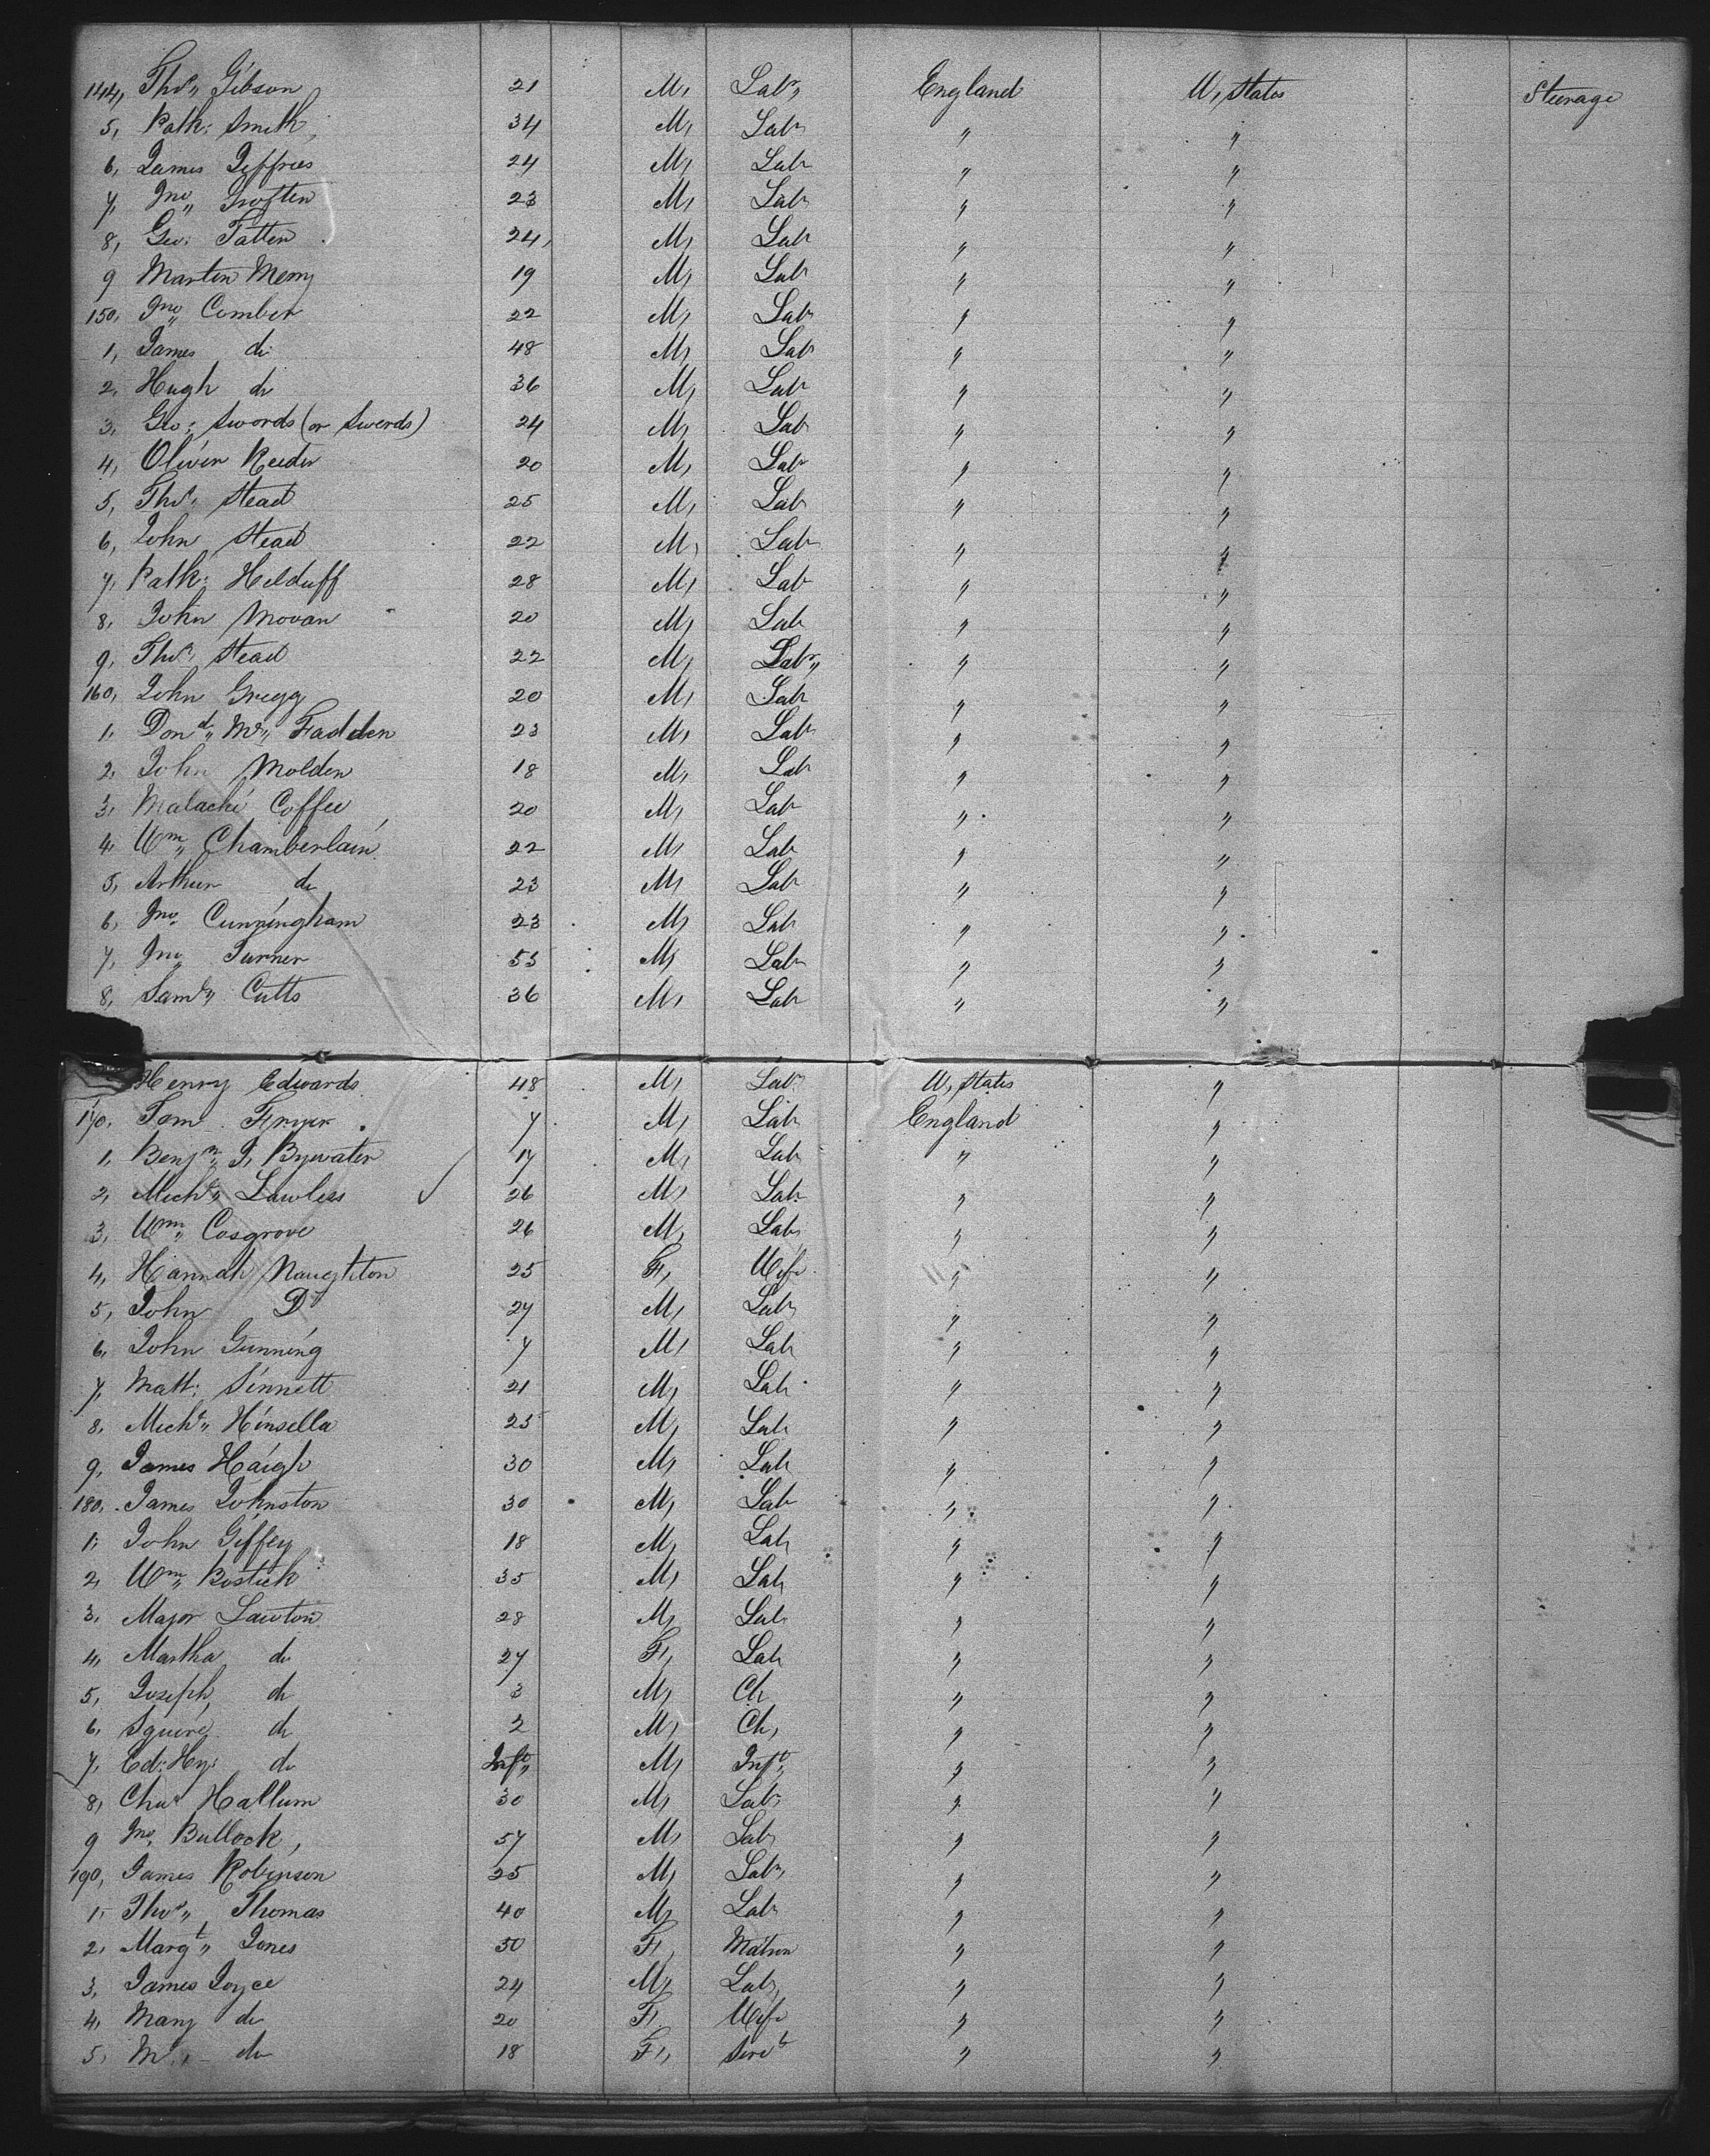 144, Thos,, Gibson 21 M, Labr,, England U, States Steerage
5, Patk: Smith, 34 M, Lab " "
6, James Jeffries 24 M, Lab " "
7, Jno,, Groften 23 M, Lab " "
8, Geo: Tatten 24, M, Lab " "
9 Martin Merry 19 M, Lab " "
150, Jno,, Comber 22 M, Lab " "
1, James do 48 M, Lab " "
2, Hugh do 36 M, Lab " "
3, Geo: Swords (or Swerds) 24 M, Lab " "
4, Oliver Reeder 20 M, Lab " "
5, Thos: Stead 25 M, Lab " "
6, John Stead 22 M, Lab " "
7, Patk: Helduff 28 M, Lab " "
8, John Movan 20 M, Lab " "
9, Thos, Stead 22 M, Labr,, " "
160, John Gregg 20 M, Lab " "
1, Dond,, Mc,, Fadden 23 M, Lab " "
2, John Molden 18 M, Lab " "
3, Malachi Coffee 20 M, Lab " "
4, Wm,, Chamberlain 22 M, Lab " "
5, Arthur do 23 M, Lab " "
6, Jno. Cunningham 23 M, Lab " "
7, Jno,, Turner 53 M, Lab " "
8, Saml,, Cutts 36 M, Lab " "
Henry Edwards 48 M, Lab U, States "
170, Tom Fryer 7 M, Lab England "
1, Benjn,, J, Bywater 17 M, Lab " "
2, Michl,, Lawless ✓ 26 M, Lab " "
3, Wm,, Cosgrove 26 M, Lab " "
4, Hannah Naughton 25 F, Wife " "
5, John Do 27 M, Lab " "
6, John Gunning 7 M, Lab " "
7, Matt: Sinnett 21 M, Lab " "
8, Michl,, Hinsella 25 M, Lab " "
9, James Haigh 30 M, Lab " "
180, James Johnston 30 M, Lab " "
1, John Giffey 18 M, Lab " "
2, Wm,, Bostick 35 M, Lab " "
3, Major Lawton 28 M, Lab " "
4, Martha do 27 F, Lab " "
5, Joseph do 3 M, Ch, " "
6, Squire do 2 M, Ch, " "
7, Ed: Hy: do Inft,, M, Inft,, " "
8, Chas Hallum 30 M, Lab " "
9 Jno, Bullock, 57 M, Lab " "
190, James Robinson 25 M, Lab, " "
1, Thos,, Thomas 40 M, Lab " "
2, Margt,, Jones 50 F, Matron " "
3, James Joyce 24 M, Lab, " "
4, Mary do 20 F, Wife " "
5, do 18 F, Servt " "